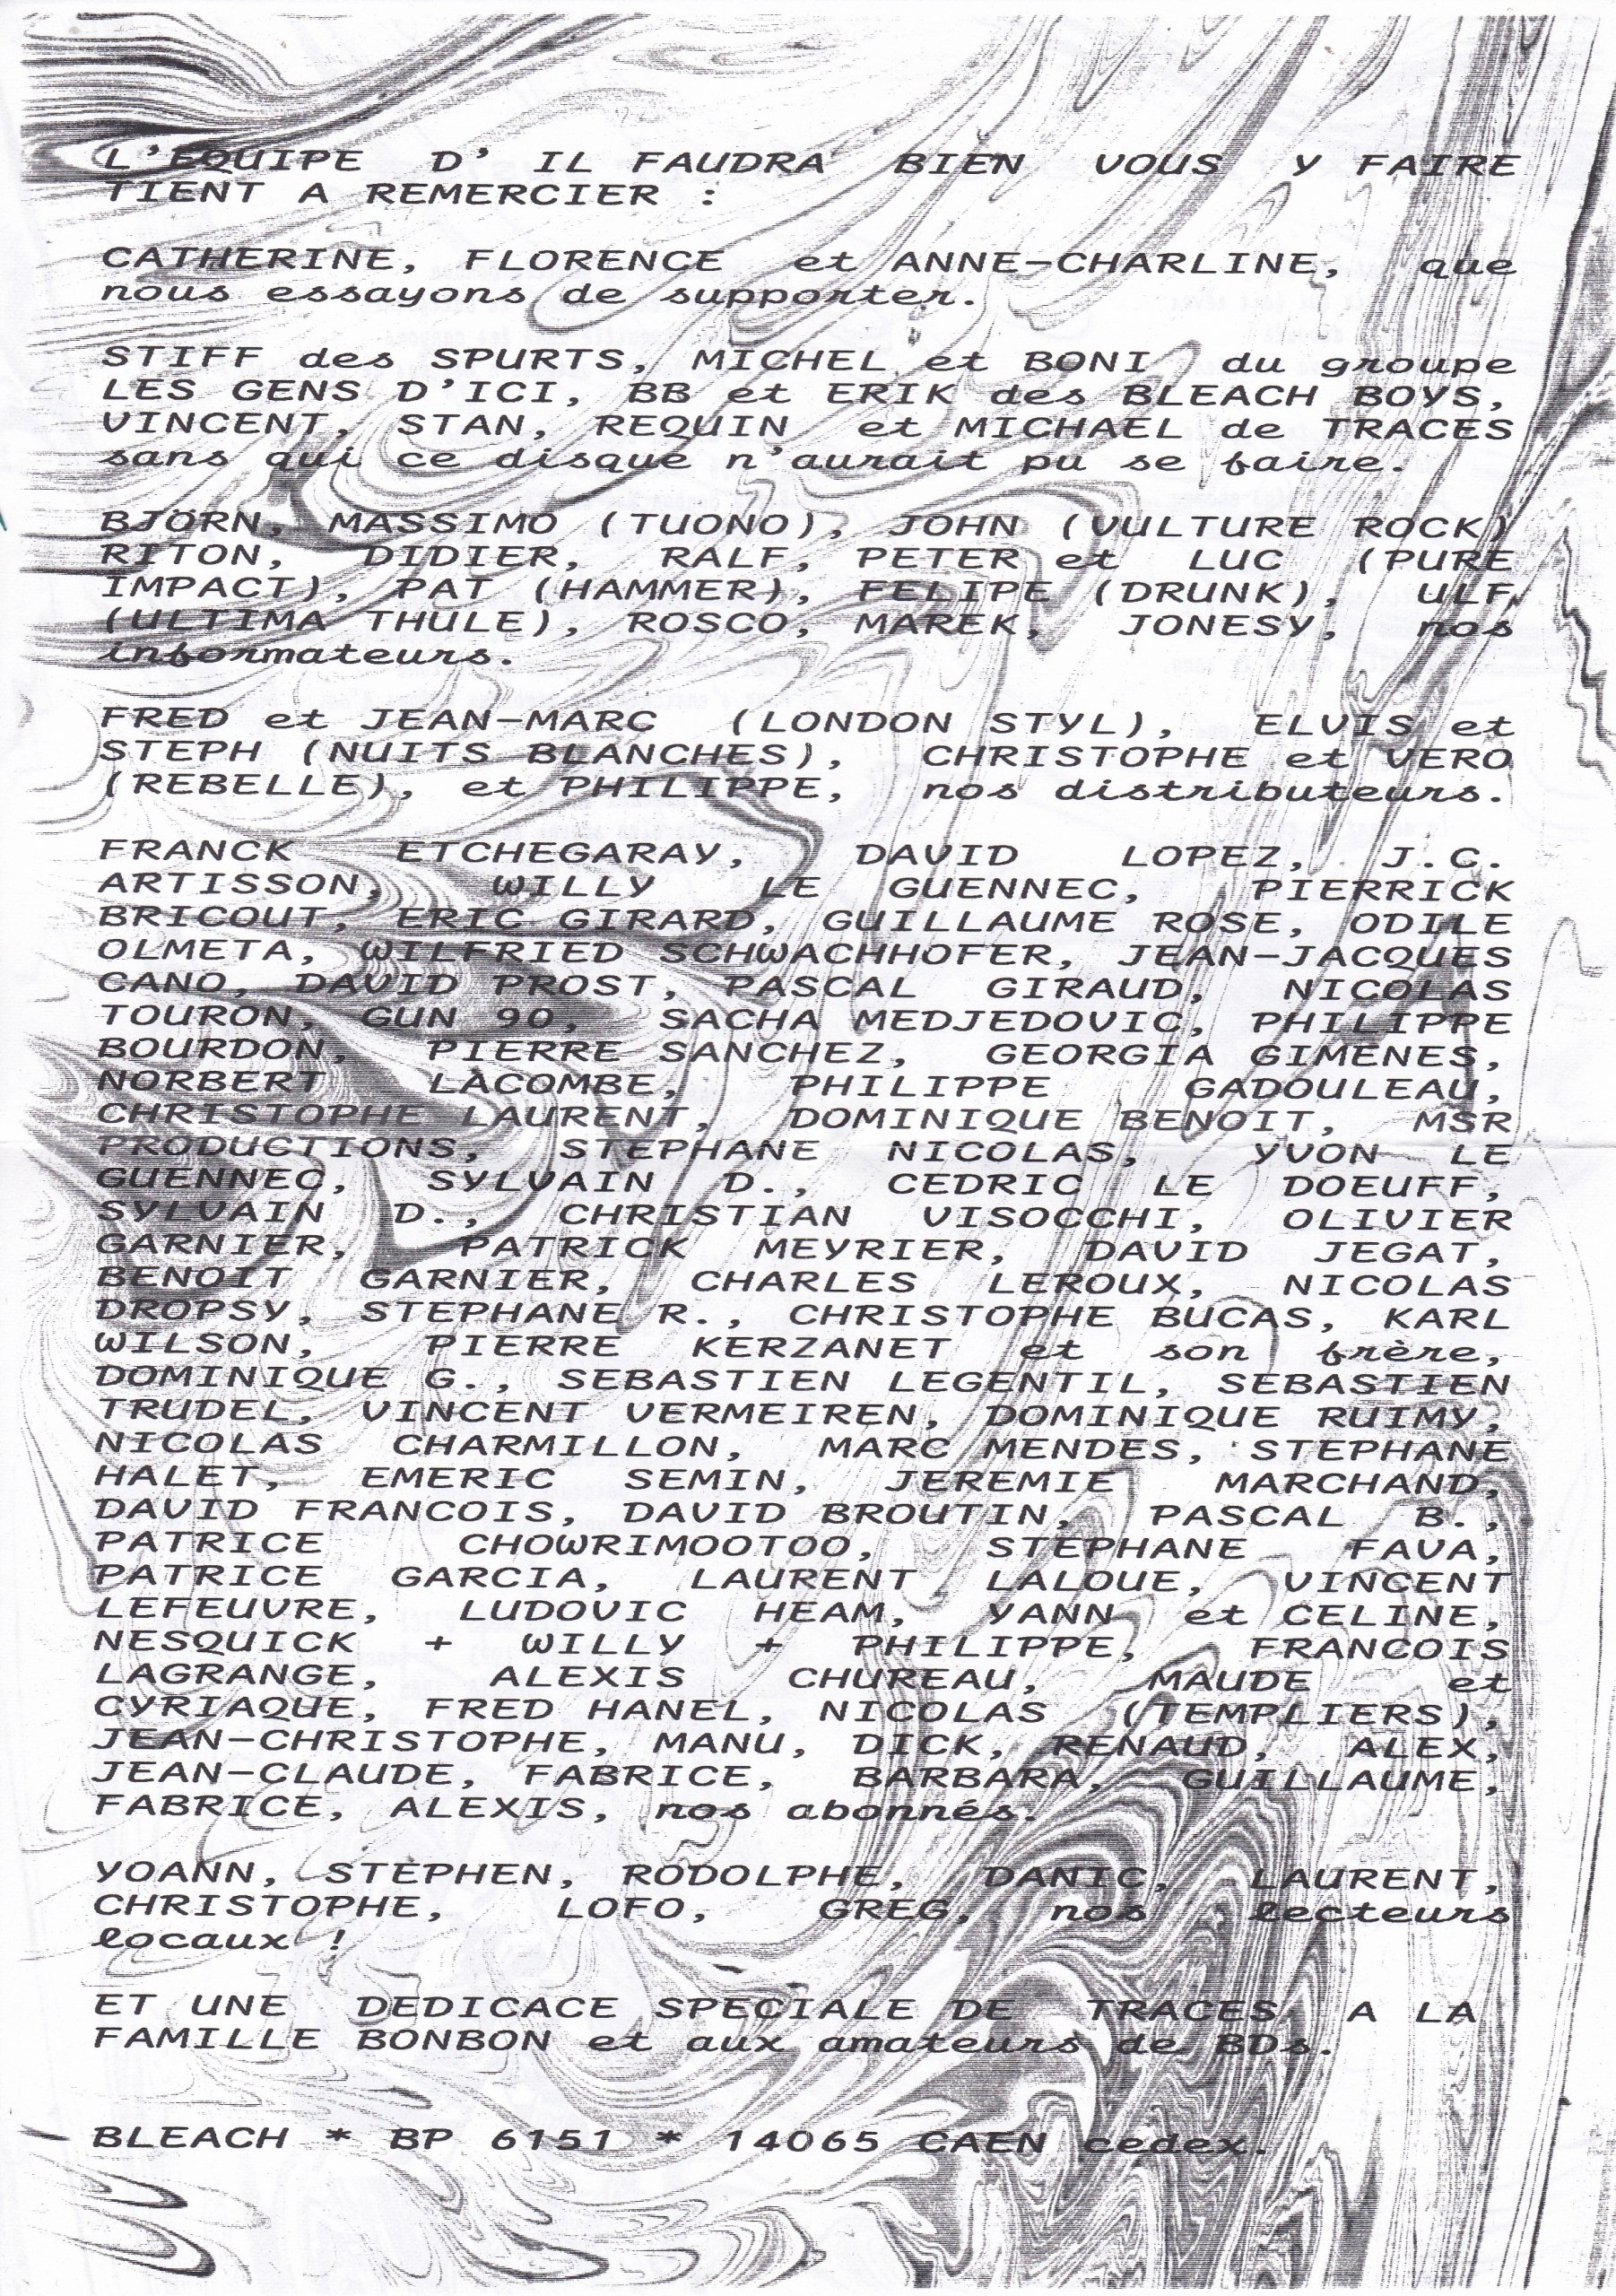 L'EQUIPE D' IL FAUDRA BIEN VOUS Y FAIRE
TIENT A REMERCIER :
CATHERINE, FLORENCE et ANNE-CHARLINE, que
nous essayons de supporter.
STIFF des SPURTS, MICHEL et BONI du groupe
LES GENS D'ICI, BB et ERIK des BLEACH BOYS,
VINCENT, STAN, REQUIN et MICHAEL de TRACES
sans qui ce disque n'aurait pu se faire.
BJORN, MASSIMO (TUONO), JOHN (VULTURE ROCK)
RITON, DIDIER, RALF, PETER et LUC (PURE
IMPACT), PAT (HAMMER), FELIPE (DRUNK), ULF
(ULTIMA THULE), ROSCO, MAREK, JONESY, nos
informateurs.
FRED et JEAN-MARC (LONDON STYL), ELVIS et
STEPH (NUITS BLANCHES), CHRISTOPHE et VERO
(REBELLE), et PHILIPPE, nos distributeurs.
FRANCK ETCHEGARAY, DAVID LOPEZ, J.C.
ARTISSON, WILLY LE GUENNEC, PIERRICK
BRICOUT, ERIC GIRARD, GUILLAUME ROSE, ODILE
OLMETA, WILFRIED SCHWACHHOFER, JEAN-JACQUES
CANO, DAVID PROST, PASCAL GIRAUD, NICOLAS
TOURON, GUN 90, SACHA MEDJEDOVIC, PHILIPPE
BOURDON, PIERRE SANCHEZ, GEORGIA GIMENES,
NORBERT LACOMBE, PHILIPPE GADOULEAU,
CHRISTOPHE LAURENT, DOMINIQUE BENOIT, MSR
PRODUCTIONS, STEPHANE NICOLAS, YVON LE
GUENNEC, SYLVAIN D., CEDRIC LE DOEUFF,
SYLVAIN D., CHRISTIAN VISOCCHI, OLIVIER
GARNIER, PATRICK MEYRIER, DAVID JEGAT,
BENOIT GARNIER, CHARLES LEROUX, NICOLAS
DROPSY, STEPHANE R., CHRISTOPHE BUCAS, KARL
WILSON, PIERRE KERZANET et son frère,
DOMINIQUE G., SEBASTIEN LEGENTIL, SEBASTIEN
TRUDEL, VINCENT VERMEIREN, DOMINIQUE RUIMY,
NICOLAS CHARMILLON, MARC MENDES, STEPHANE
HALET, EMERIC SEMIN, JEREMIE MARCHAND,
DAVID FRANCOIS, DAVID BROUTIN, PASCAL B.,
PATRICE CHOWRIMOOTOO, STEPHANE FAVA,
PATRICE GARCIA, LAURENT LALOUE, VINCENT
LEFEUVRE, LUDOVIC HEAM, YANN et CELINE,
NESQUICK + WILLY + PHILIPPE, FRANCOIS
LAGRANGE, ALEXIS CHUREAU, MAUDE et
CYRIAQUE, FRED HANEL, NICOLAS (TEMPLIERS),
JEAN-CHRISTOPHE, MANU, DICK, RENAUD, ALEX,
JEAN-CLAUDE, FABRICE, BARBARA, GUILLAUME,
FABRICE, ALEXIS, nos abonnés.
YOANN, STEPHEN, RODOLPHE, DANIC, LAURENT,
CHRISTOPHE, LOFO, GREG, nos lecteurs
locaux !
ET UNE DEDICACE SPECIALE DE TRACES A LA
FAMILLE BONBON et aux amateurs de BDs.
BLEACH * BP 6151 * 14065 CAEN cedex.